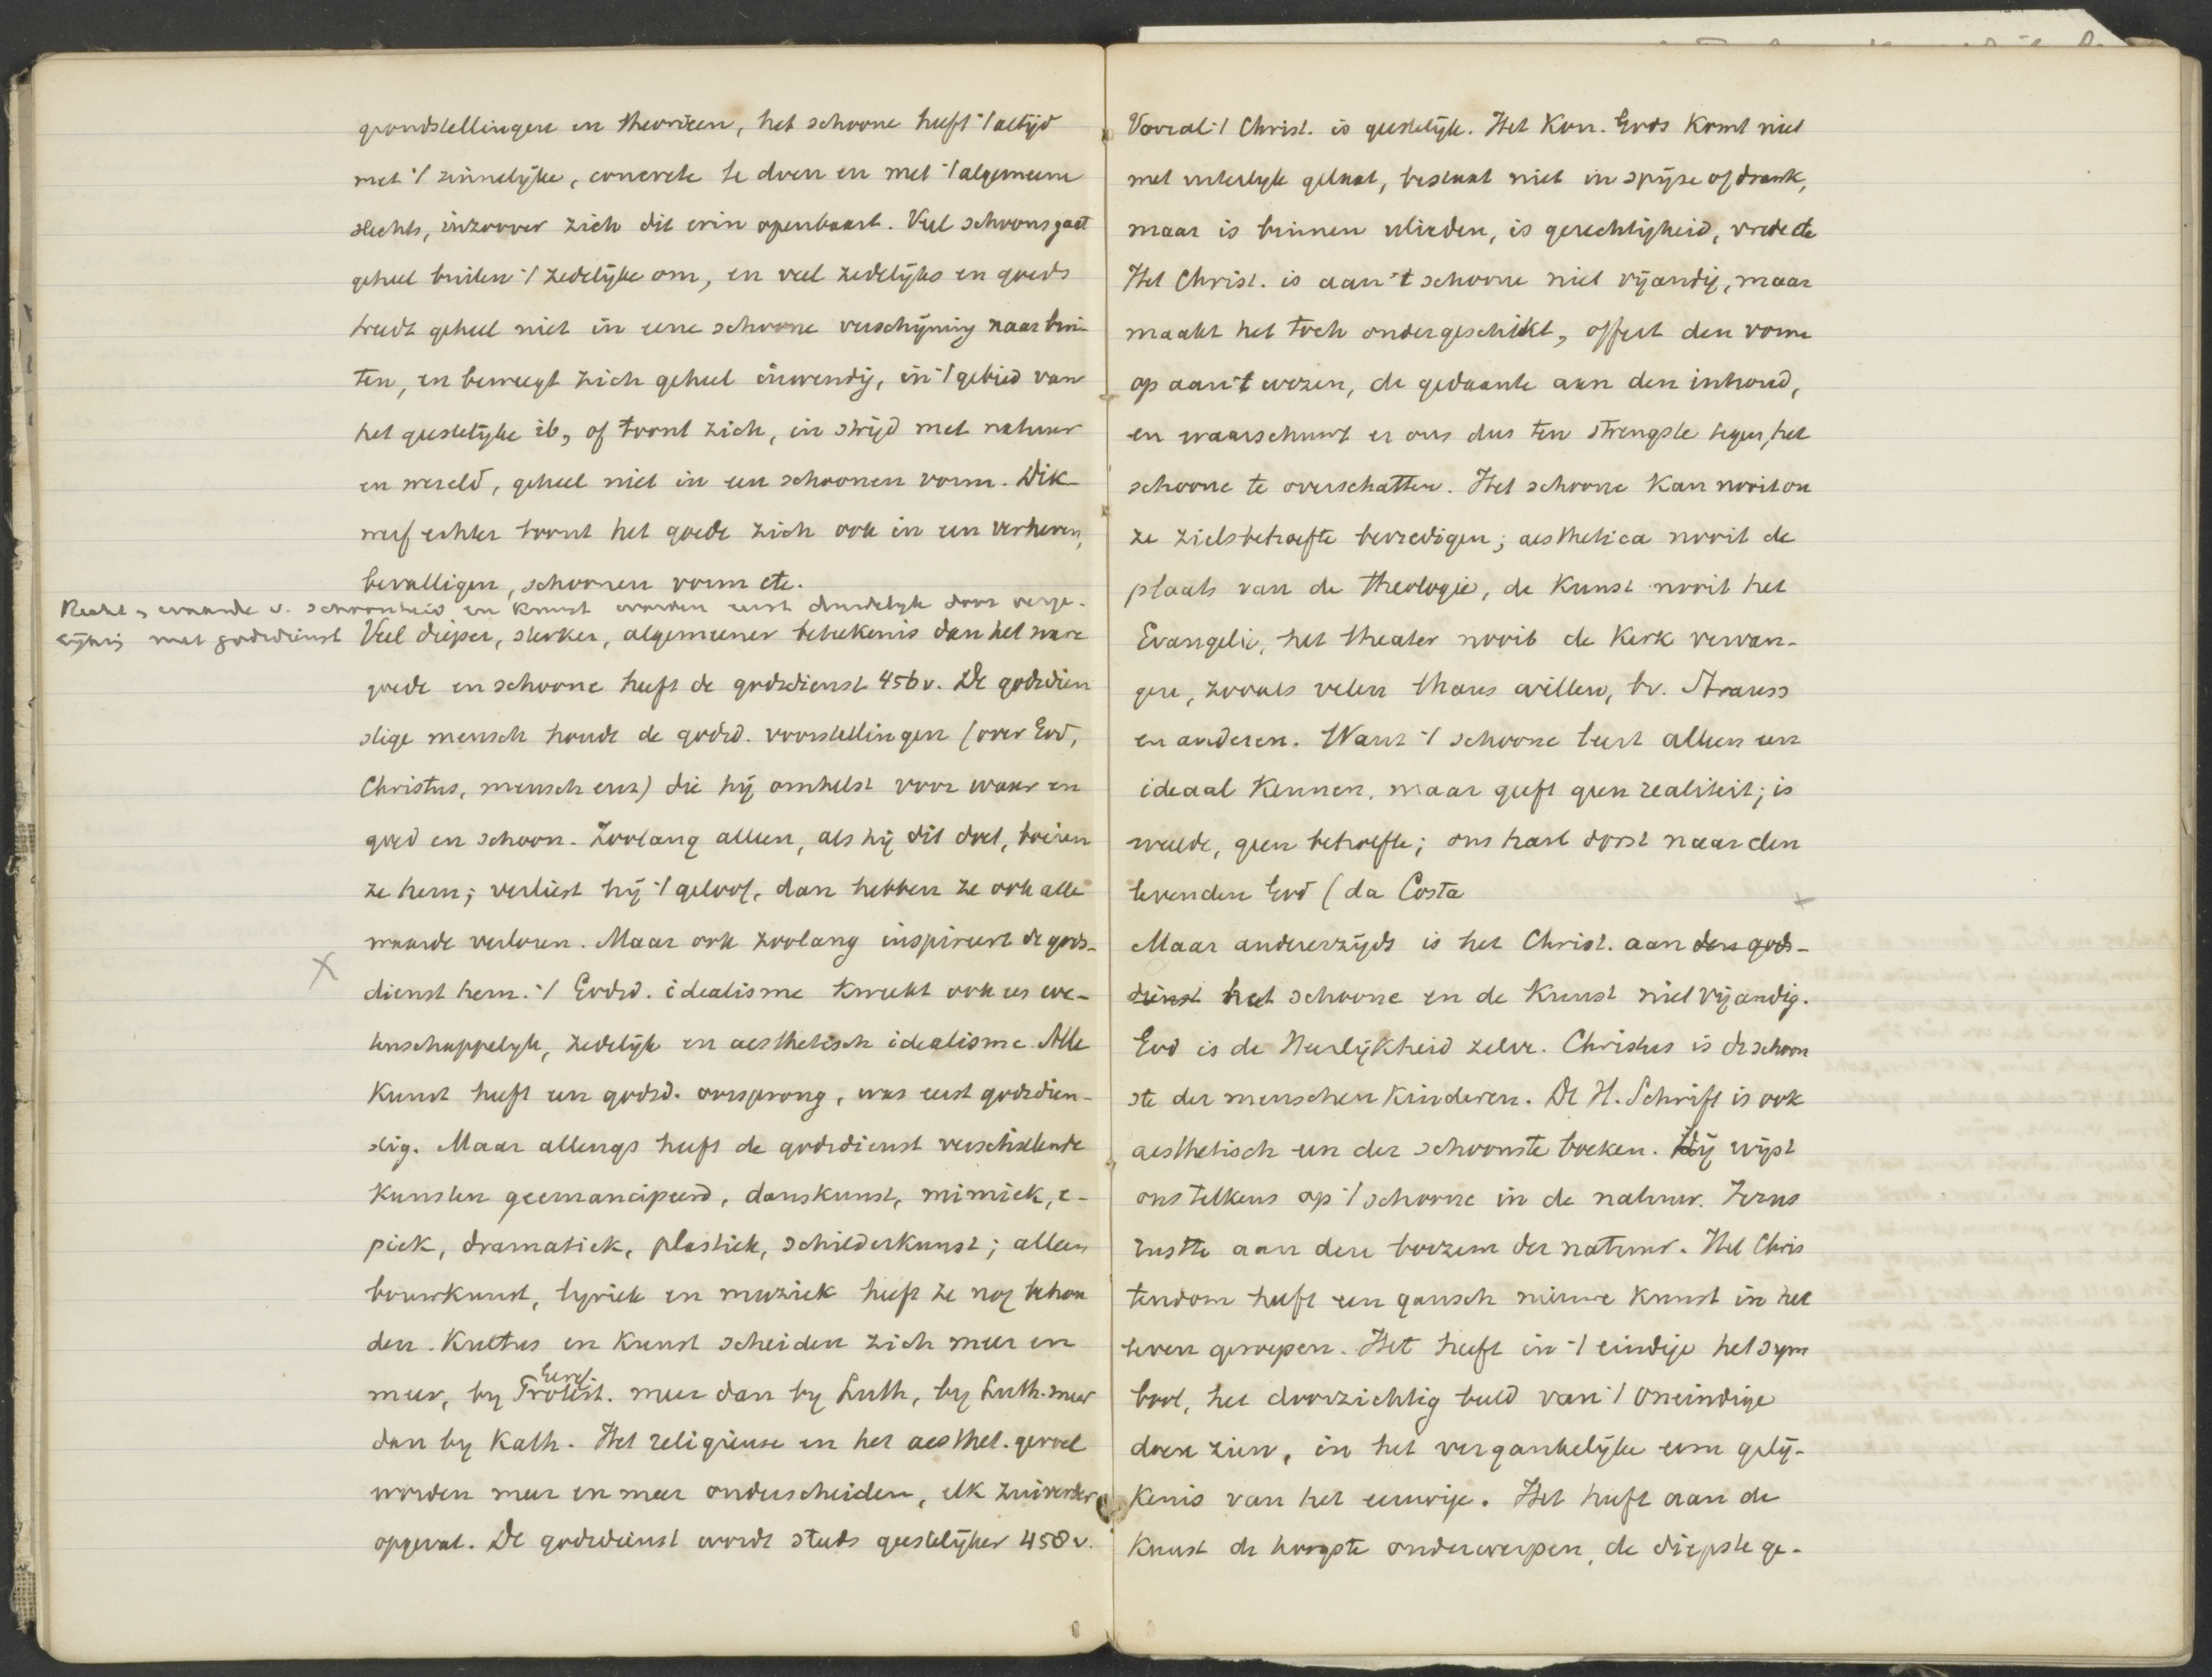 grondstellingen en theorieen, het schoone heeft 't altijd
met 't zinnelijke, concrete te doen en met 't algemeene
slechts, inzoover zich dit erin openbaart. Veel schoons gaat
geheel buiten 't zedelijke om, en veel zedelijks en goeds
treedt geheel niet in eene schoone verschijning naar bui-
ten, en beweegt zich geheel inwendig, in 't gebied van
het geestelijke ib, of toont zich, in strijd met natuur
en wereld, geheel niet in een schoonen vorm. Dik-
werf echter toont het goede zich ook in een verheven,
bevalligen, schoonen vorm etc.
Recht en waarde v. schoonheid en kunst worden eerst duidelijk door verge-
lijking met godsdienst
Veel dieper, sterker, algemeener beteekenis dan het ware
goede en schoone heeft de godsdienst 456v. De godsdien
stige mensch houdt de godsd. voorstellingen (over God,
Christus, mensch enz) die hij omhelst voor waar en
goed en schoon. Zoolang alleen, als hij dit doet, boeien
ze hem; verliest hij 't geloof, dan hebben ze ook alle
waarde verloren. Maar ook zoolang inspireert de gods-
dienst hem. 't Godsd. idealisme kweekt ook es we-
tenschappelijk, zedelijk en aesthetisch idealisme. Alle
Kunst heeft een godsd. oorsprong, was eerst godsdien-
stig. Maar allengs heeft de godsdienst verschillende
Kunsten geemancipeerd, danskunst, mimiek, e-
piek, dramatiek, plastiek, schilderkunst; alleen
bouwkunst, lyriek en muziek heeft ze nog behou
den. Kultus en Kunst scheiden zich meer en
meer, by Protest. meer dan by Luth, by Luth. meer
dan by Kath. Het religieuse en het aesthet. gevoel
worden meer en meer onderscheiden, elk zuiverder
opgevat. De godsdienst wordt steeds geestelijker 458v.
Vooral 't Christ. is geestelijk. Het Kon. Gods Komt niet
met uiterlyk gelaat, bestaat niet in spijze of drank,
maar is binnen ulieden, is gerechtigheid, vrede etc
Het Christ. is aan 't schoone niet vijandig, maar
maakt het toch ondergeschikt, offert den vorm
op aan 't wezen, de gedaante aan den inhoud,
en waarschuwt er ons dus ten strengste tegen, het
schoone te overschatten. Het schoone Kan nooit on
ze zielsbehoefte bevredigen; aesthetica nooit de
plaats van de theologie, de Kunst nooit het
Evangelie, het theater nooit de Kerk vervan-
gen, zooals velen thans willen, bv. Strauss
en anderen. Want 't schoone leert alleen een
ideaal Kennen, maar geeft geen realiteit; is
weelde, geen behoefte; ons hart dorst naar den
levenden God (da Costa
Maar andererzijds is het Christ. aan den gods-
dienst het schoone en de Kunst niet vijandig.
God is de Heerlijkheid zelve. Christus is de schoon
ste der menschen Kinderen. De H. Schrift is ook
aesthetisch een der schoonste boeken. Hij wijst
ons telkens op 't schoone in de natuur. Jezus
rustte aan den boezem der natuur. Het Chris
tendom heeft een gansch nieuwe Kunst in het
leven geroepen. Het heeft in 't eindige het sym
bool, het doorzichtig beeld van 't oneindige
doen zien, in het vergankelijke eene gelij-
Kenis van het eeuwige. Het heeft aan de
Kunst de hoogste onderwerpen, de diepste ge-